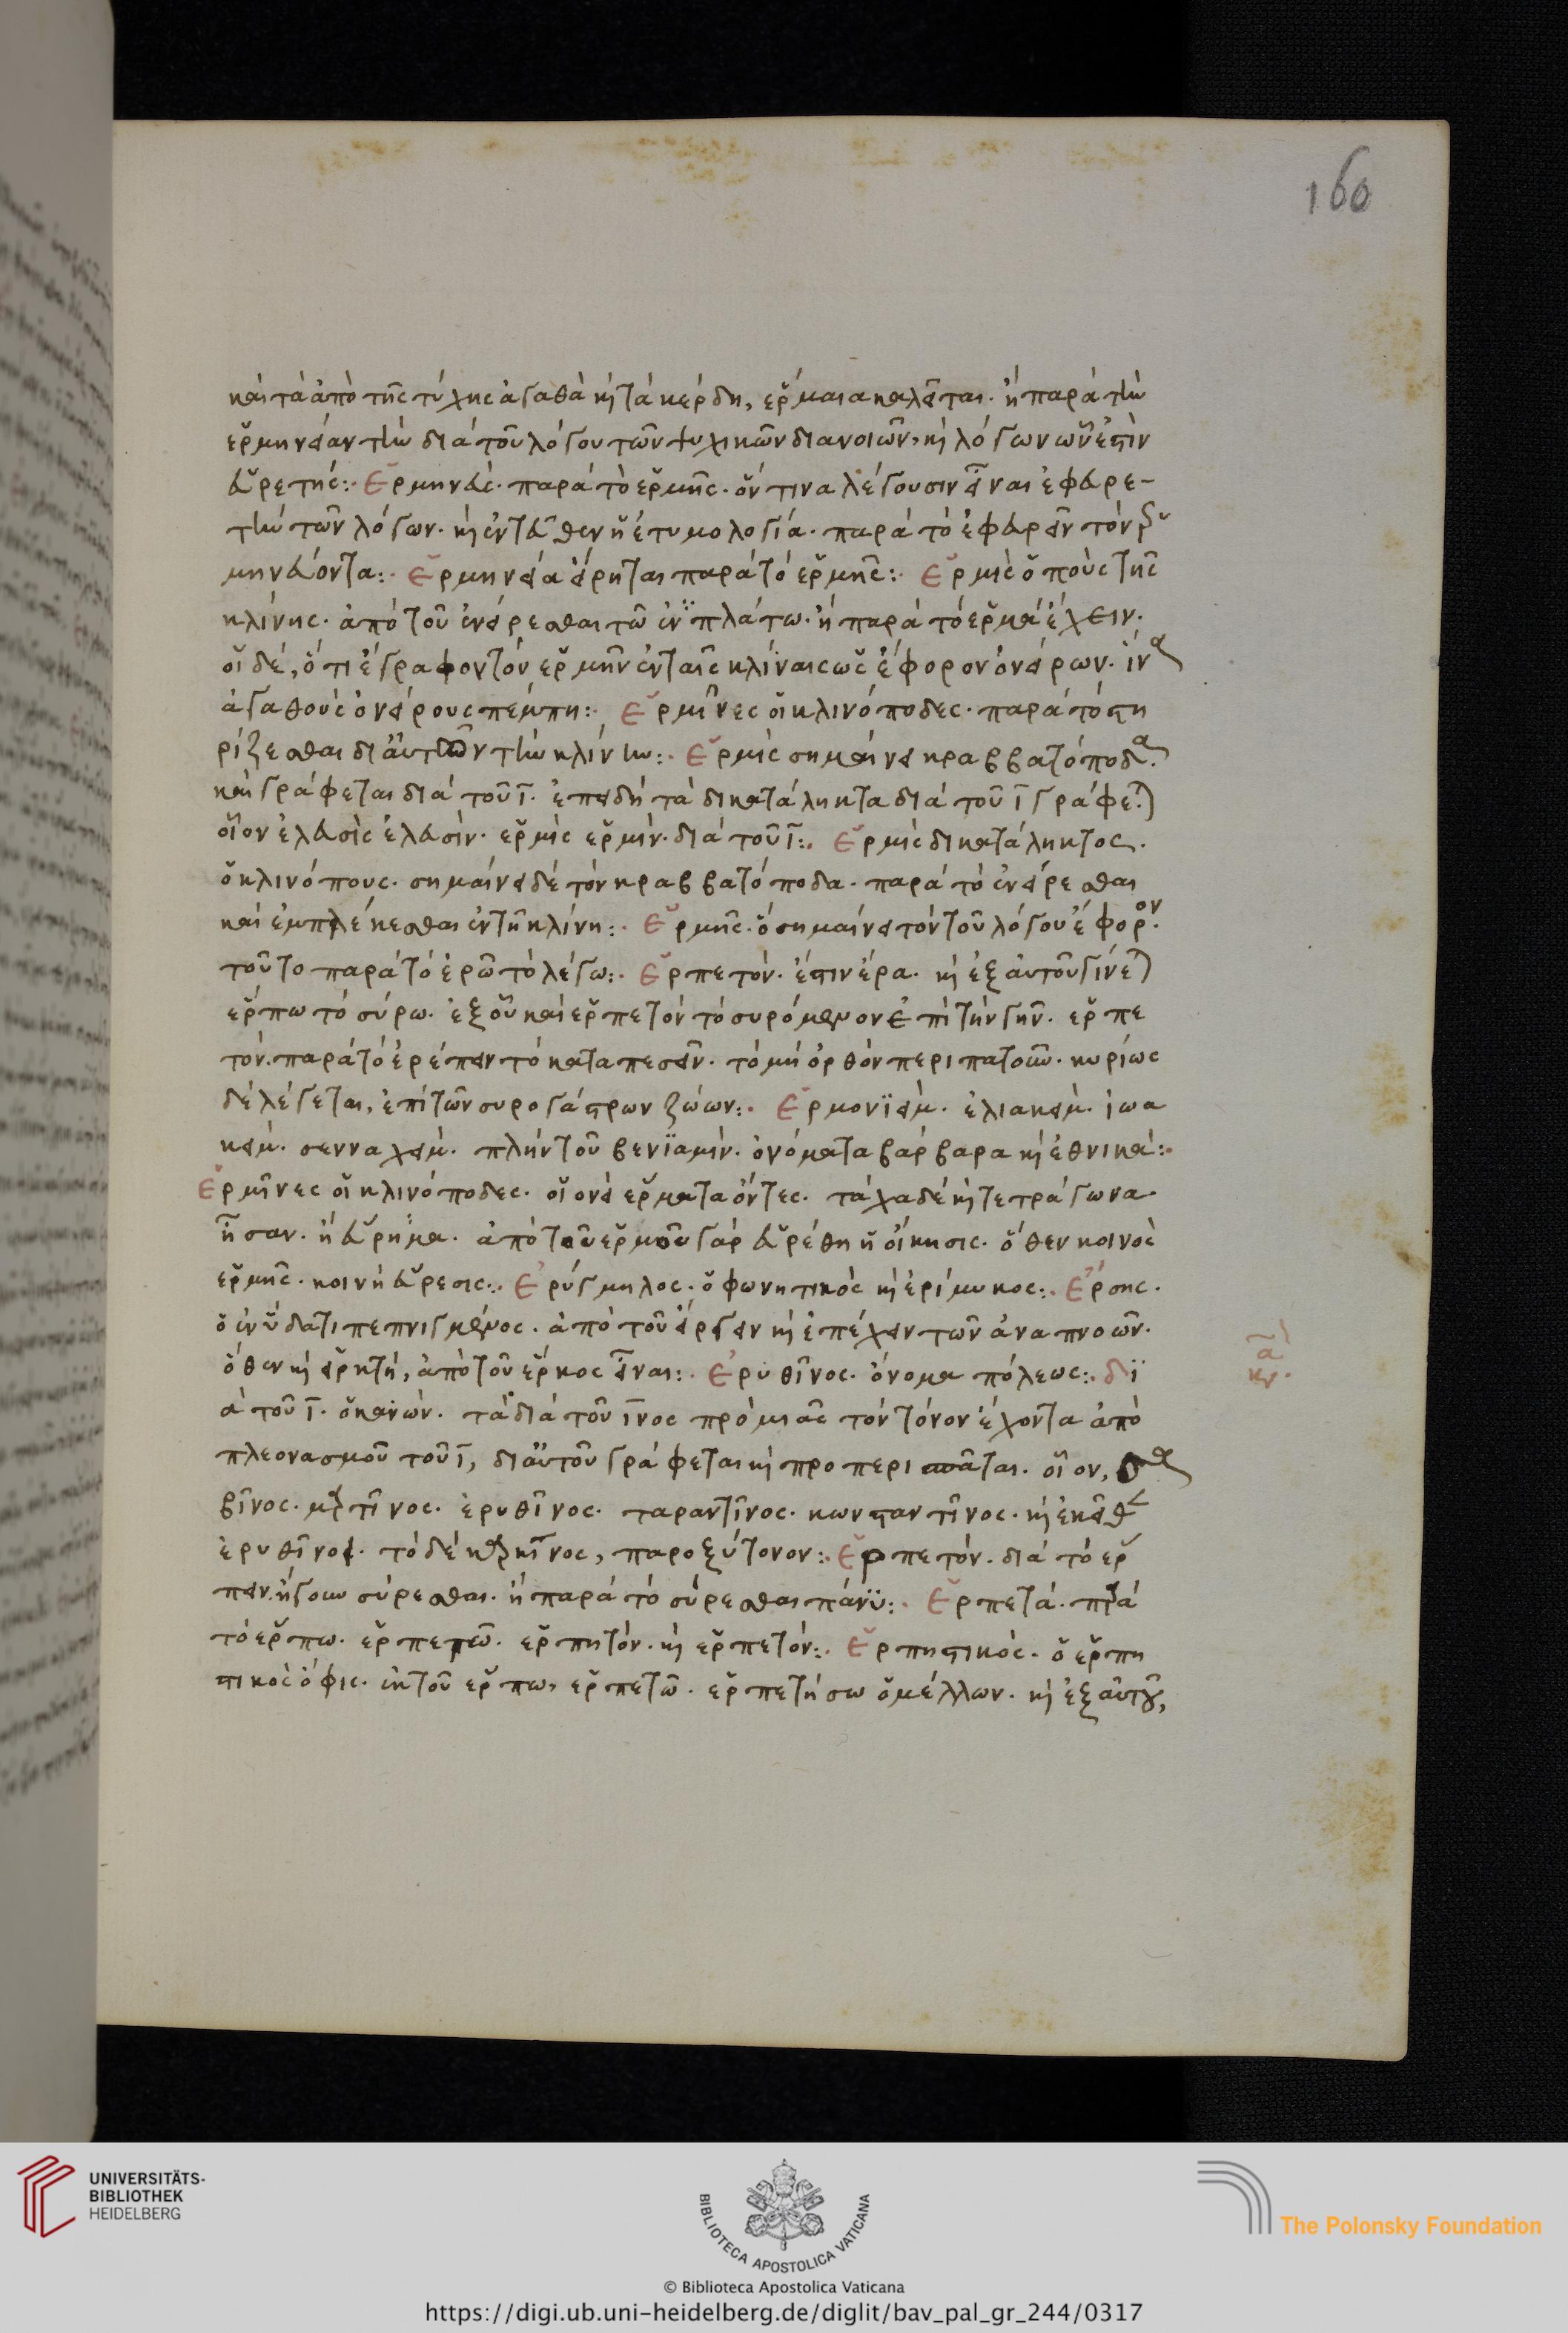 160
καὶ τὰ ἀπὸ τῆς τύχης ἀγαθὰ κὶ τὰ κέρδη, ἑρμαια καλεῖται. ἢ παρὰ τὴν
ἑρμηνείαν τὴν διὰ τοῦ λόγου τῶν ψυχικῶν διανοιῶν, κὶ λόγων ὧν ἐστὶν
εὑρετής:· Ἑρμηνεὺς. παρὰ τὸ ἑρμῆς. ὅν τινα λέγουσιν εἶναι ἐφευρε-
τὴν τῶν λόγων. κὶ ἐνταῦθεν ἡ ἐτυμολογία. παρὰ τὸ ἐφευρεῖν τὸν ἑρ
μηνεύοντα:· Ἑρμηνεία εἴρηται παρὰ τὸ ἑρμῆς:· Ἑρμὶς ὁ ποὺς τῆς
κλίνης. ἀπὸ τοῦ ἐνείρεσθαι τῶ ἐνϋπλάτω. ἢ παρὰ τὸ ἑρμά ἔχειν.
οἱ δέ, ὅτι ἔγραφον τὸν ἑρμῆν ἐν ταῖς κλίναις ὡς ἔφορον ὀνείρων. ἵνα
ἀγαθοὺς ὀνείρους πέμπη:· Ἑρμῖνες οἱ κλινόποδες. παρὰ τὸ στη
ρίζεσθαι δι αὐτῶν τὴν κλίνην:· Ἑρμὶς σημαίνει κραββατόποδα.
καὶ γράφεται διὰ τοῦ ῑ. ἐπειδὴ τὰ δικατάληκτα διὰ τοῦ ῑ γράφεται
οἷον ἐλευσὶς ἐλευσὶν. ἑρμὶς ἑρμὶν. διὰ τοῦ ῑ:· Ἑρμὶς δικατάληκτος.
ὁ κλινόπους. σημαίνει δὲ τὸν κραββατόποδα. παρὰ τὸ ἐνείρεσθαι
καὶ ἐμπλέκεσθαι ἐν τῆ κλίνη:· Ἑρμῆς. ὁ σημαίνει τὸν τοῦ λόγου ἔφορον.
τοῦτο παρὰ τὸ ἐρῶ τὸ λέγω:· Ἑρπετόν. ἔστιν ἔρα. κὶ ἐξ αὐτοῦ γίνεται
ἕρπω τὸ σύρω. ἐξ οὗ καὶ ἑρπετὸν τὸ συρόμενον ἐπὶ τὴν γῆν. ἑρπε
τόν. παρὰ τὸ ἐρέπειν τὸ καταπεσεῖν. τὸ μὴ ὀρθὸν περιπατοῦν. κυρίως
δὲ λέγεται, ἐπὶ τῶν συρογάστρων ζώων:· Ἑρμονϊεὶμ. ἐλιακεὶμ. ἰωα
κεὶμ. σενναχεὶμ. πλὴν τοῦ βενϊαμὶν. ὀνόματα βάρβαρα κὶ ἐθνικά:·
Ἑρμῖνες οἱ κλινόποδες. οἱονεὶ ἑρματα ὄντες. τάχα δὲ κὶ τετράγωνα
ἦσαν. ἢ εὕρημα. ἀπὸ τοῦ ἑρμοῦ γὰρ εὑρέθη ἡ οἴκησις. ὅθεν κοινὸς
ἑρμῆς. κοινὴ εὕρεσις:· Ἐρύγμηλος. ὁ φωνητικὸς κὶ ἐρίμυκος:· Ἔρσης.
ὁ ἐν ὕδατι πεπνιγμένος. ἀπὸ τοῦ εἴργειν κὶ ἐπέχειν τῶν ἀναπνοῶν.
ὅθεν κὶ εἱρκτή, ἀπὸ τοῦ ἕρκος εἶναι:· Ἐρυθῖνος. ὄνομα πόλεως:· δϊ
ὰ τοῦ ῑ. ὁ κανών. τὰ διὰ τοῦ ῖνος πρὸ μιᾶς τὸν τόνον ἔχοντα ἀπὸ
πλεονασμοῦ τοῦ ῑ, δι αὐτοῦ γράφεται κὶ προπερισπᾶται. οἷον,
βῖνος. μαρτῖνος. ἐρυθῖνος. ταραντῖνος. κωνσταντῖνος. κὶ ἐκεῖθεν
ἐρυθῖνος. τὸ δὲ καρκίνος, παροξύτονον:· Ἑρπετόν. διὰ τὸ ἕρ
πειν. ἤγουν σύρεσθαι. ἢ παρὰ τὸ σύρεσθαι πάνϋ:· Ἑρπετά. παρὰ
τὸ ἕρπω. ἑρπετῶ. ἑρπητόν. κὶ ἑρπετόν:· Ἑρπηστικὸς. ὁ ἑρπη
στικὸς ὄφις. ἐκ τοῦ ἕρπω, ἑρπετῶ. ἑρπετήσω ὁ μέλλων. κὶ ἐξ αὐτοῦ,
UNIVERSITÄTS-
BIBLIOTHEK
HEIDELBERG
BIBLIOTECA APOSTOLICA VATICANA
The Polonsky Foundation
© Biblioteca Apostolica Vaticana
https://digi.ub.uni-heidelberg.de/diglit/bav_pal_gr_244/0317